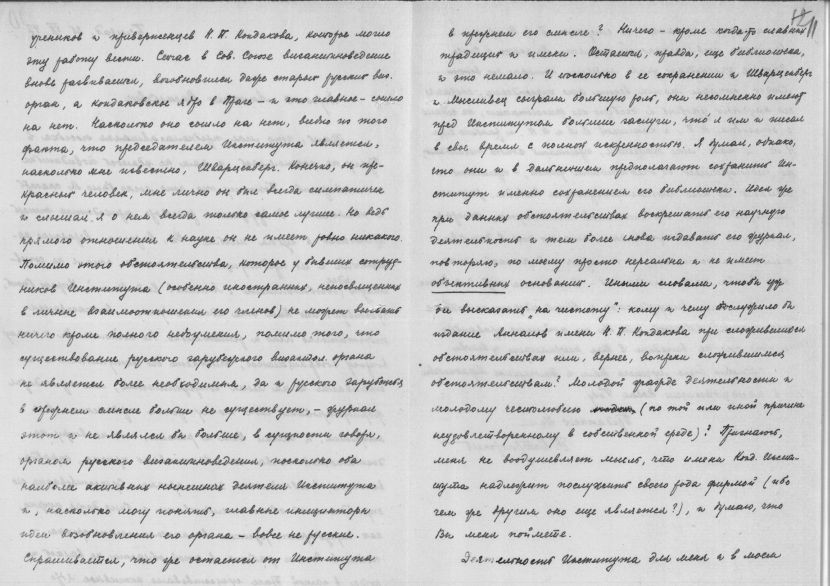 учеников и приверженцев Н. П. Кондакова, которое могло
эту работу вести. Сейчас в Сов. Союзе византиноведение
вновь развивается, возобновился даже старый русский виз.
орган, а кондаковское ядро в Праге – и это главное – сошло
на нет. Насколько оно сошло на нет, видно из того
факта, что председателем Института является,
насколько мне известно, Шварценберг. Конечно, он пре-
красный человек, мне лично он был всегда симпатичен
и слышал я о нем всегда только самое лучшее. Но ведь
прямого отношения к науке он не имеет ровно никакого.
Помимо этого обстоятельства, которое у бывших сотруд-
ников Института (особенно иностранных, непосвященных
в личные взаимоотношения его членов) не может вызвать
ничего кроме полного недоумения, помимо того, что
существование русского зарубежного византол. органа
не является более необходимым, да и русского зарубежья
в прежнем смысле больше не существует, – журнал
этот и не являлся бы больше, в сущности говоря,
органом русского византиноведения, поскольку оба
наиболее активных нынешних деятеля Института
и, насколько могу понять, главные инициаторы
идеи возобновления его органа – вовсе не русские.
Спрашивается, что же остается от Института
11
в прежнем его смысле? Ничего – кроме когда-то славных
традиций и имени. Остается, правда, еще библиотека,
и это немало. И поскольку в ее сохранении и Шварценберг
и Мысливец сыграли большую роль, они несомненно имеют
пред Институтом большие заслуги, что я им и писал
в свое время с полной искренностью. Я думал, однако,
что они и в дальнейшем предполагают сохранить Ин-
ститут именно сохранением его библиотеки. Идея же
при данных обстоятельствах воскрешать его научную
деятельность и тем более снова издавать его журнал,
повторяю, по моему просто нереальна и не имеет
объективных оснований. Иными словами, чтобы уж
все высказать „на чистоту“: кому и чему послужило бы
издание Анналов имени Н. П. Кондакова при сложившихся
обстоятельствах или, вернее, вопреки сложившимся
обстоятельствам? Молодой жажде деятельности и
молодому честолюбию (по той или иной причине
неудовлетворенному в собственной среде)? Признаюсь,
меня не воодушевляет мысль, что имени Конд. Инсти-
тута надлежит послужить своего рода фирмой (ибо
чем же другим оно еще является?), и думаю, что
Вы меня поймете.
Деятельность Института для меня и в моем